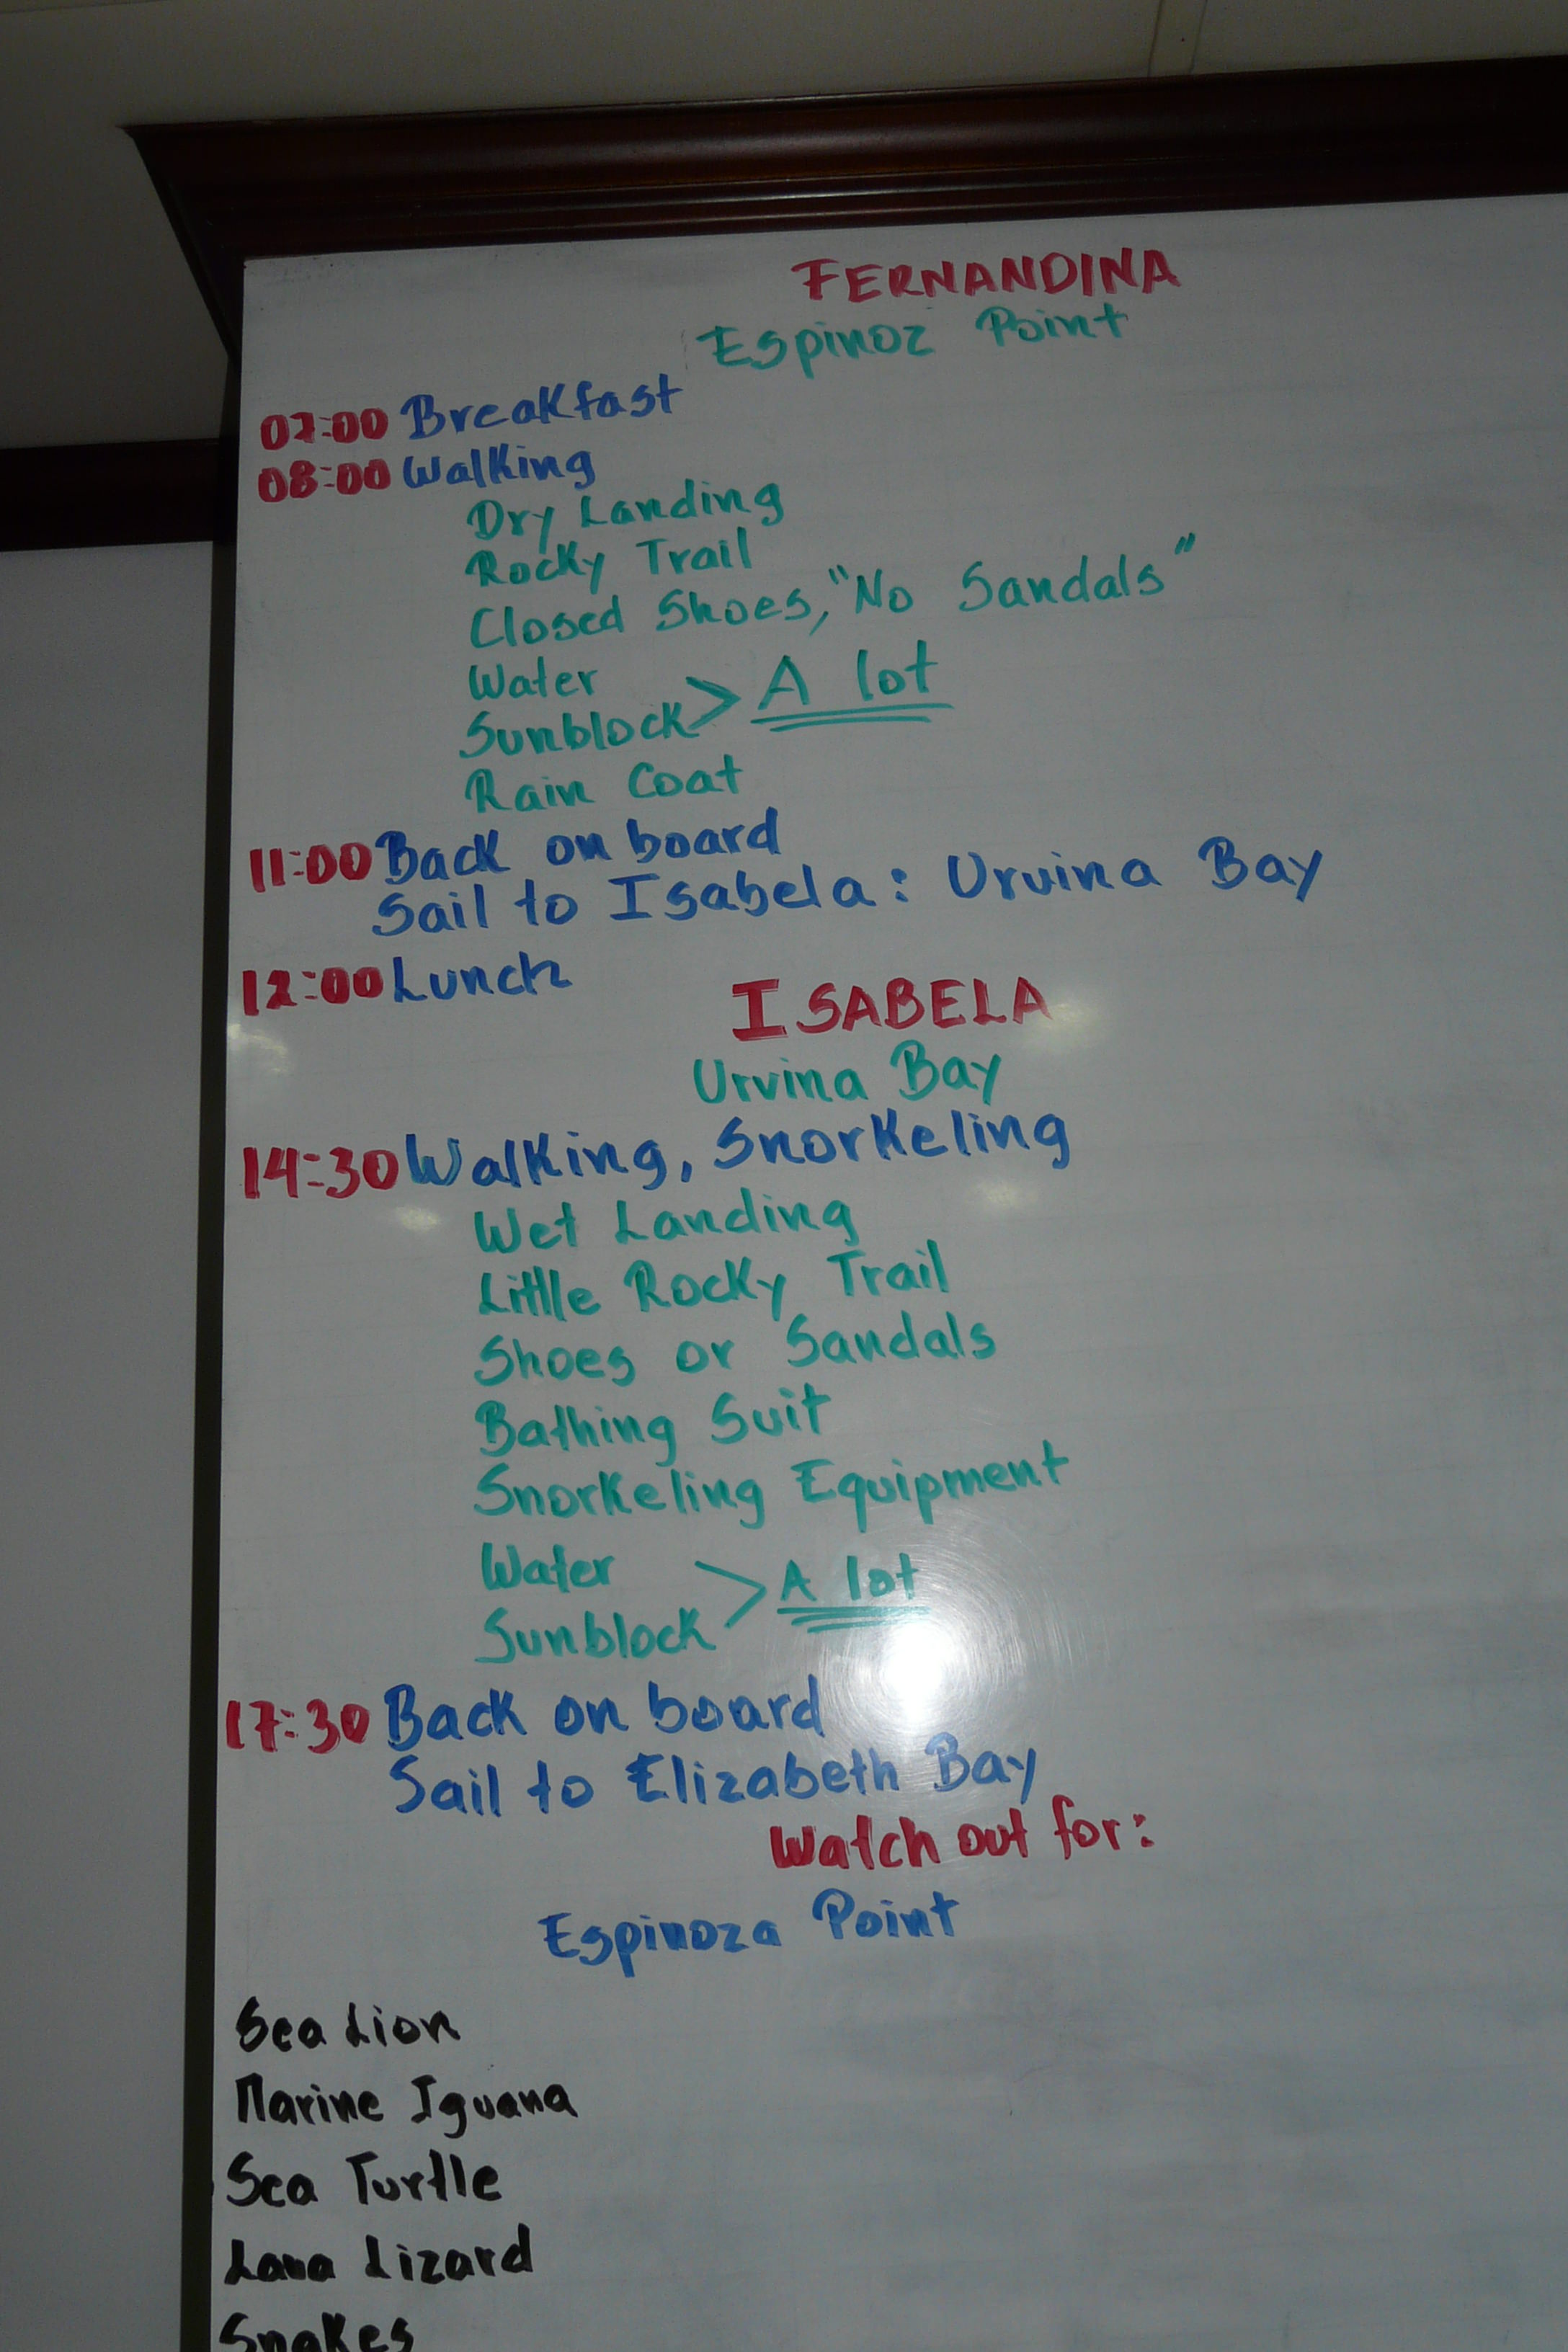 FERNANDINA
Espinoz Point
07:00 Breakfast
08:00 Walking
Dry Landing
Rocky Trail
Closed Shoes, "No Sandals"
Water
Sunblock > A lot
Rain Coat
11:00 Back on board
Sail to Isabela: Urvina Bay
12:00 Lunch
ISABELA
Urvina Bay
14:30 Walking, Snorkeling
Wet Landing
Little Rocky Trail
Shoes or Sandals
Bathing Suit
Snorkeling Equipment
Water > A lot
Sunblock
17:30 Back on board
Sail to Elizabeth Bay
Watch out for:
Espinoza Point
Sea Lion
Marine Iguana
Sea Turtle
Lava Lizard
Snakes